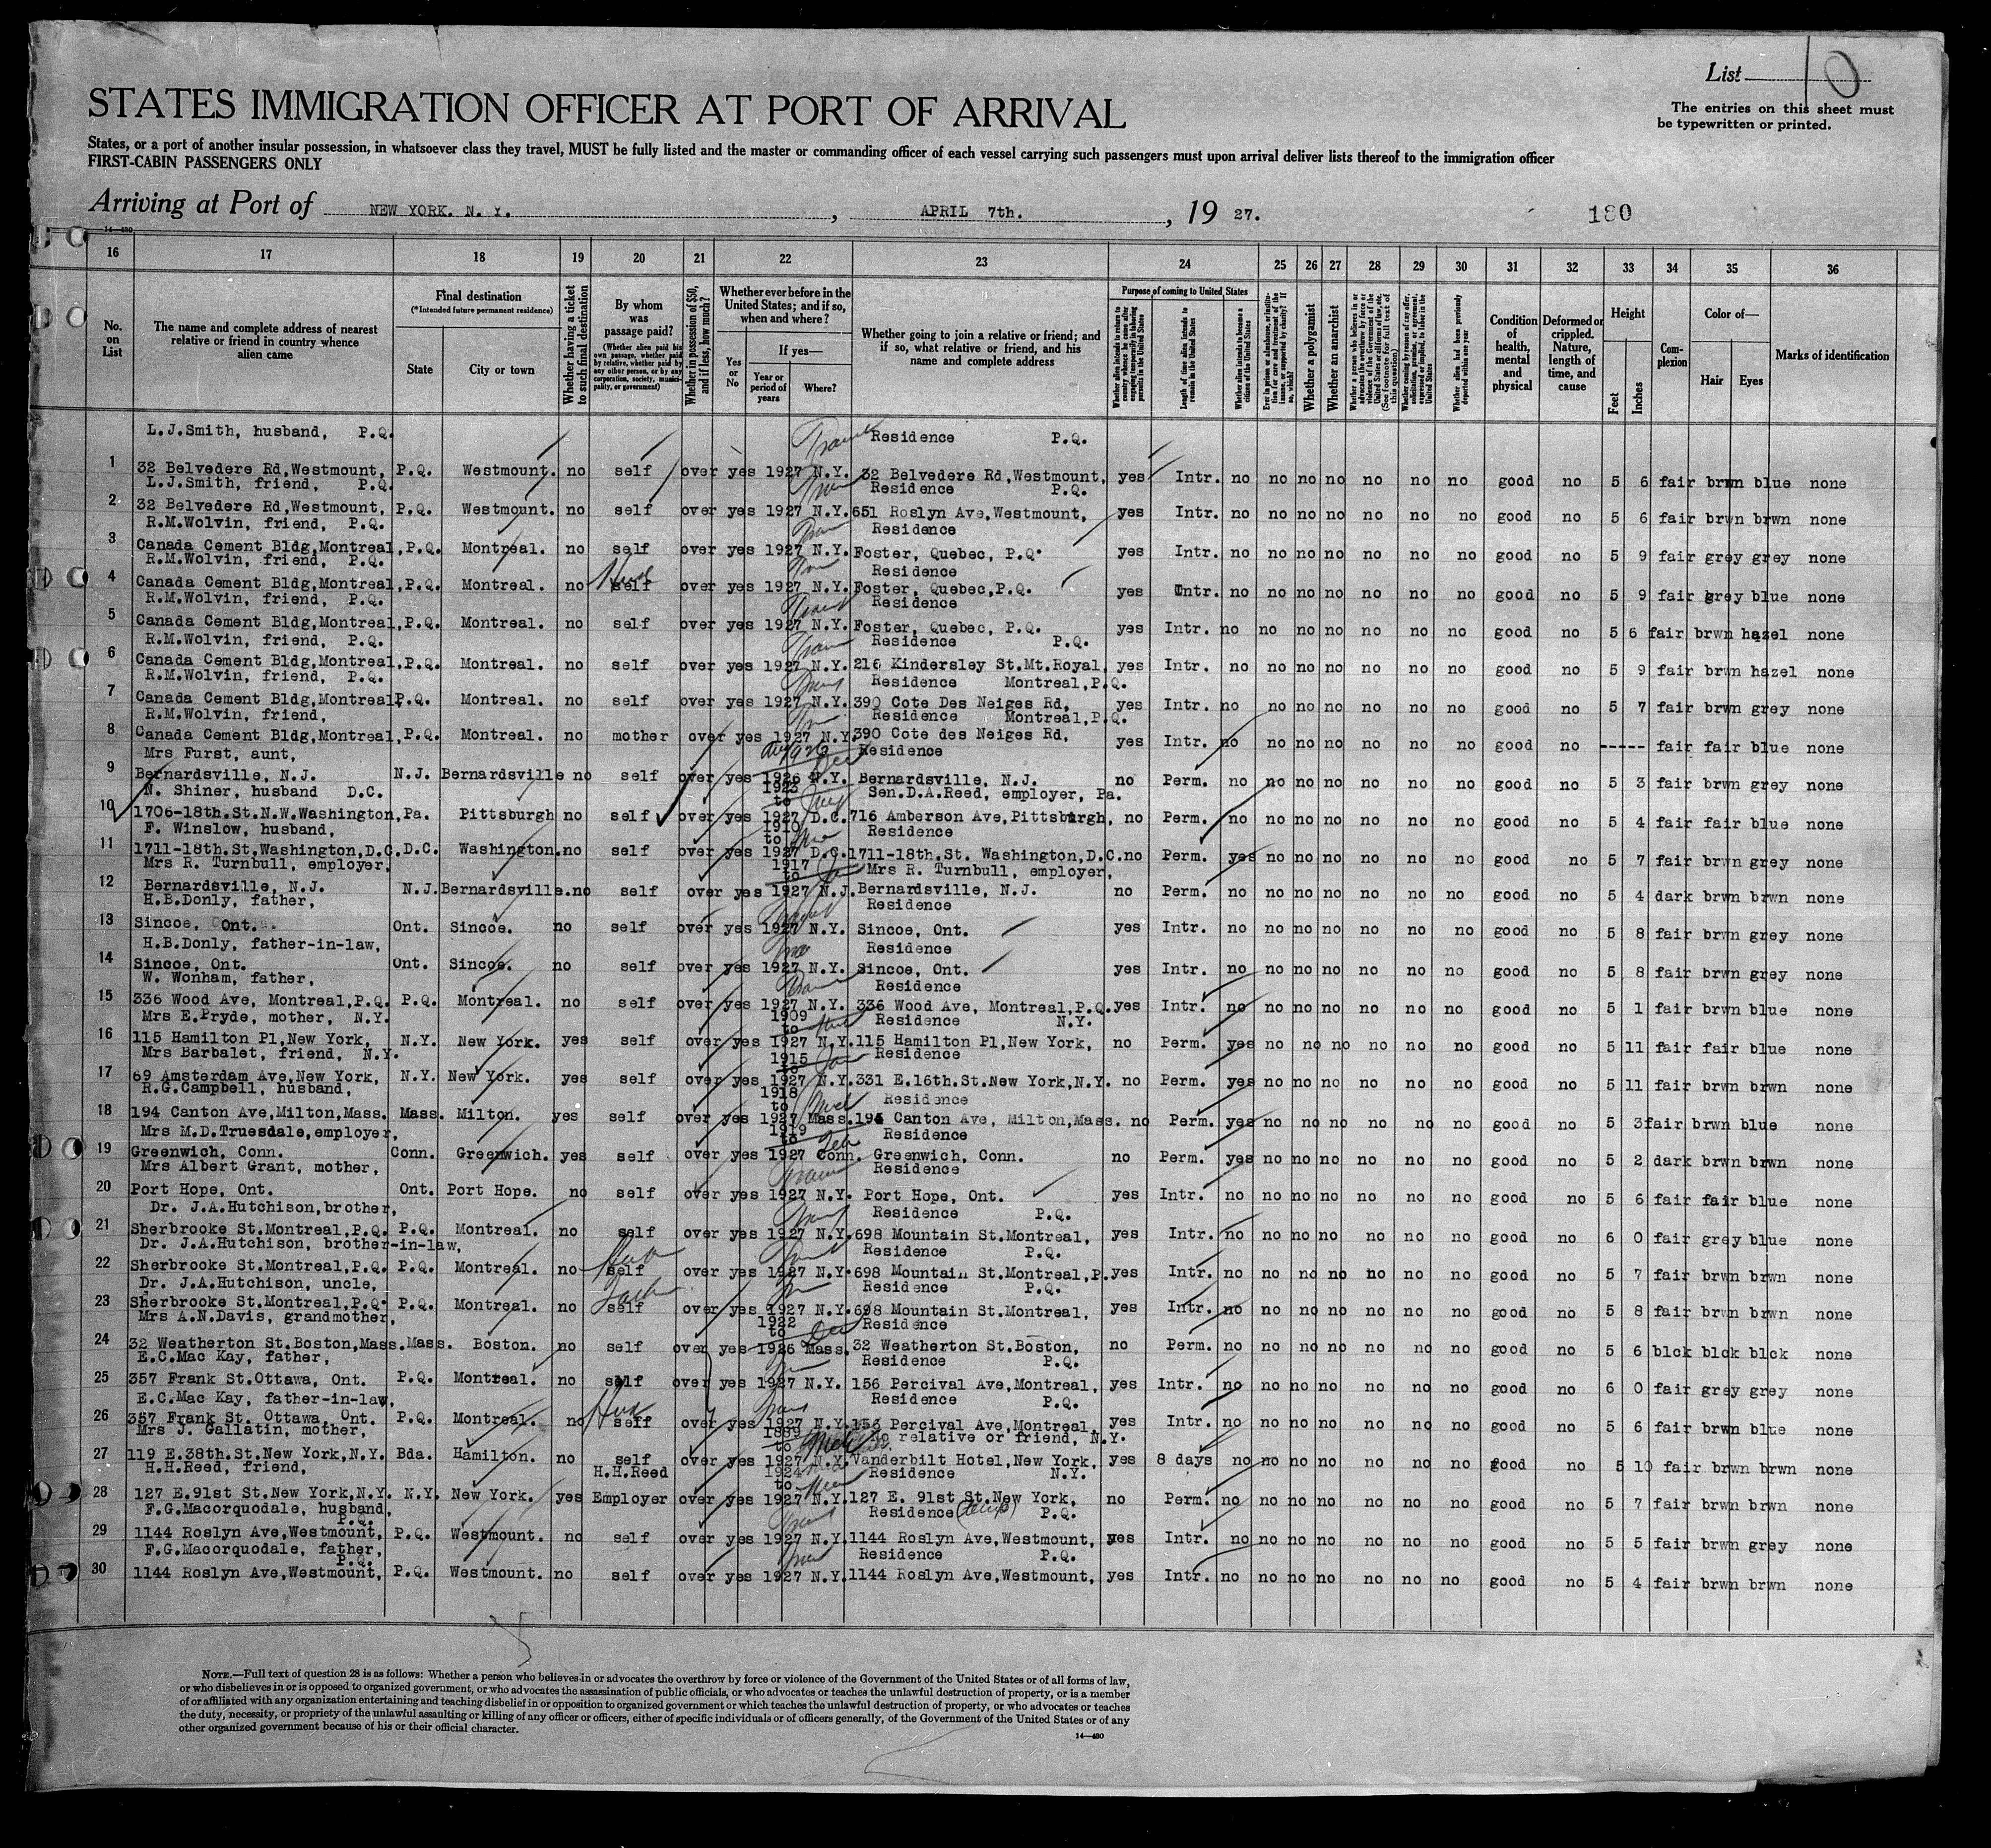 List 10
The entries on this sheet must
be typewritten or printed.
STATES IMMIGRATION OFFICER AT PORT OF ARRIVAL
States, or a port of another insular possession, in whatsoever class they travel, MUST be fully listed and the master or commanding officer of each vessel carrying such passengers must upon arrival deliver lists thereof to the immigration officer
FIRST-CABIN PASSENGERS ONLY
Arriving at Port of NEW YORK. N. Y. , APRIL 7th. , 19 27. 180
14—430
16 17 18 19 20 21 22 23 24 25 26 27 28 29 30 31 32 33 34 35 36
No. on List
The name and complete address of nearest relative or friend in country whence alien came
Final destination
(*Intended future permanent residence)
State City or town
Whether having a ticket to such final destination
By whom was passage paid?
(Whether alien paid his own passage, whether paid by relative, whether paid by any other person, or by any corporation, society, municipality, or government)
Whether in possession of $50, and if less, how much?
Whether ever before in the United States; and if so, when and where?
Yes or No
If yes—
Year or period of years Where?
Whether going to join a relative or friend; and if so, what relative or friend, and his name and complete address
Purpose of coming to United States
Whether alien intends to return to country whence he came after engaging temporarily in laboring pursuits in the United States
Length of time alien intends to remain in the United States
Whether alien intends to become a citizen of the United States
Ever in prison or almshouse, or institution for care and treatment of the insane, or supported by charity? If so, which?
Whether a polygamist
Whether an anarchist
Whether a person who believes in or advocates the overthrow by force or violence of the Government of the United States or all forms of law, etc. (See footnote for full text of this question)
Whether coming by reason of any offer, solicitation, promise, or agreement, expressed or implied, to labor in the United States
Whether alien had been previously deported within one year
Condition of health, mental and physical
Deformed or crippled. Nature, length of time, and cause
Height
Feet Inches
Complexion
Color of—
Hair Eyes
Marks of identification
L.J.Smith, husband, P.Q. Residence P.Q.
1 32 Belvedere Rd,Westmount, P.Q. Westmount. no self over yes 1927 N.Y. 32 Belvedere Rd,Westmount, yes Intr. no no no no no no no good no 5 6 fair brwn blue none
L.J.Smith, friend, P.Q. Residence P.Q.
2 32 Belvedere Rd,Westmount, P.Q. Westmount. no self over yes 1927 N.Y. 651 Roslyn Ave,Westmount, yes Intr. no no no no no no no good no 5 6 fair brwn brwn none
R.M.Wolvin, friend, P.Q. Residence
3 Canada Cement Bldg,Montreal, P.Q. Montreal. no self over yes 1927 N.Y. Foster, Quebec, P.Q. yes Intr. no no no no no no no good no 5 9 fair grey grey none
R.M.Wolvin, friend, P.Q. Residence
4 Canada Cement Bldg,Montreal, P.Q. Montreal. no self over yes 1927 N.Y. Foster, Quebec,P.Q. yes Intr. no no no no no no no good no 5 9 fair grey blue none
R.M.Wolvin, friend, P.Q. Residence
5 Canada Cement Bldg,Montreal, P.Q. Montreal. no self over yes 1927 N.Y. Foster, Quebec, P.Q. yes Intr. no no no no no no no good no 5 6 fair brwn hazel none
R.M.Wolvin, friend, P.Q. Residence P.Q.
6 Canada Cement Bldg,Montreal, P.Q. Montreal. no self over yes 1927 N.Y. 216 Kindersley St.Mt.Royal, yes Intr. no no no no no no no good no 5 9 fair brwn hazel none
R.M.Wolvin, friend, P.Q. Residence Montreal,P.Q.
7 Canada Cement Bldg,Montreal, P.Q. Montreal. no self over yes 1927 N.Y. 390 Cote Des Neiges Rd, yes Intr. no no no no no no no good no 5 7 fair brwn grey none
R.M.Wolvin, friend, Residence Montreal,P.Q.
8 Canada Cement Bldg,Montreal, P.Q. Montreal. no mother over yes 1927 N.Y. 390 Cote des Neiges Rd, yes Intr. no no no no no no no good no ----- fair fair blue none
Mrs Furst, aunt, Residence
9 Bernardsville, N.J. N.J. Bernardsville no self over yes 1926 N.Y. Bernardsville, N.J. no Perm. no no no no no no no good no 5 3 fair brwn grey none
N. Shiner, husband D.C. 1923 to Sen.D.A.Reed, employer, Pa.
10 1706-18th.St.N.W.Washington, Pa. Pittsburgh no self over yes 1927 D.C. 716 Amberson Ave,Pittsburgh, no Perm. no no no no no no no good no 5 4 fair fair blue none
F. Winslow, husband, 1910 to Residence
11 1711-18th.St.Washington,D.C. D.C. Washington. no self over yes 1927 D.C. 1711-18th.St. Washington,D.C. no Perm. yes no no no no no no good no 5 7 fair brwn grey none
Mrs R. Turnbull, employer, 1917 to Mrs R. Turnbull, employer,
12 Bernardsville, N.J. N.J. Bernardsville. no self over yes 1927 N.J. Bernardsville, N.J. no Perm. no no no no no no no good no 5 4 dark brwn brwn none
H.B.Donly, father, Residence
13 Sincoe, Ont. Ont. Sincoe. no self over yes 1927 N.Y. Sincoe, Ont. yes Intr. no no no no no no no good no 5 8 fair brwn grey none
H.B.Donly, father-in-law, Residence
14 Sincoe, Ont. Ont. Sincoe. no self over yes 1927 N.Y. Sincoe, Ont. yes Intr. no no no no no no no good no 5 8 fair brwn grey none
W. Wonham, father, Residence
15 336 Wood Ave, Montreal,P.Q. P.Q. Montreal. no self over yes 1927 N.Y. 336 Wood Ave, Montreal,P.Q. yes Intr. no no no no no no no good no 5 1 fair brwn blue none
Mrs E.Pryde, mother, N.Y. 1909 to Residence N.Y.
16 115 Hamilton Pl,New York, N.Y. New York. yes self over yes 1927 N.Y. 115 Hamilton Pl,New York, no Perm. yes no no no no no no good no 5 11 fair fair blue none
Mrs Barbalet, friend, N.Y. 1915 to Residence
17 69 Amsterdam Ave,New York, N.Y. New York. yes self over yes 1927 N.Y. 331 E.16th.St.New York,N.Y. no Perm. yes no no no no no no good no 5 11 fair brwn brwn none
R.G.Campbell, husband, 1918 to Residence
18 194 Canton Ave,Milton,Mass. Mass. Milton. yes self over yes 1927 Mass. 194 Canton Ave, Milton,Mass. no Perm. yes no no no no no no good no 5 3 fair brwn blue none
Mrs M.D.Truesdale,employer, 1919 to Residence
19 Greenwich, Conn. Conn. Greenwich. yes self over yes 1927 Conn. Greenwich, Conn. no Perm. yes no no no no no no good no 5 2 dark brwn brwn none
Mrs Albert Grant, mother, Residence
20 Port Hope, Ont. Ont. Port Hope. no self over yes 1927 N.Y. Port Hope, Ont. yes Intr. no no no no no no no good no 5 6 fair fair blue none
Dr. J.A.Hutchison,brother, Residence P.Q.
21 Sherbrooke St.Montreal,P.Q. P.Q. Montreal. no self over yes 1927 N.Y. 698 Mountain St.Montreal, yes Intr. no no no no no no no good no 6 0 fair grey blue none
Dr. J.A.Hutchison, brother-in-law, Residence P.Q.
22 Sherbrooke St.Montreal,P.Q. P.Q. Montreal. no self over yes 1927 N.Y. 698 Mountain St.Montreal,P. yes Intr. no no no no no no no good no 5 7 fair brwn brwn none
Dr. J.A.Hutchison, uncle, Residence P.Q.
23 Sherbrooke St.Montreal,P.Q. P.Q. Montreal. no self over yes 1927 N.Y. 698 Mountain St.Montreal, yes Intr. no no no no no no no good no 5 8 fair brwn brwn none
Mrs A.N.Davis, grandmother, 1922 to Dec Residence
24 32 Weatherton St.Boston,Mass. Mass. Boston. no self over yes 1926 Mass. 32 Weatherton St.Boston, no Perm. no no no no no no no good no 5 6 blck blck blck none
E.C.Mac Kay, father, Residence P.Q.
25 357 Frank St.Ottawa, Ont. P.Q. Montreal. no self over yes 1927 N.Y. 156 Percival Ave,Montreal, yes Intr. no no no no no no no good no 6 0 fair grey grey none
E.C.Mac Kay, father-in-law, Residence P.Q.
26 357 Frank St. Ottawa, Ont. P.Q. Montreal. no self over yes 1927 N.Y. 156 Percival Ave,Montreal, yes Intr. no no no no no no no good no 5 6 fair brwn blue none
Mrs J. Gallatin, mother, 1889 to No relative or friend, N.Y.
27 119 E.38th.St.New York,N.Y. Bda. Hamilton. no self over yes 1927 N.Y. Vanderbilt Hotel,New York, yes 8 days no no no no no no no good no 5 10 fair brwn brwn none
H.H.Reed, friend, H.H.Reed 1924 to Residence N.Y.
28 127 E.91st St.New York,N.Y. N.Y. New York. yes Employer over yes 1927 N.Y. 127 E. 91st St.New York, no Perm. no no no no no no no good no 5 7 fair brwn brwn none
F.G.Macorquodale, husband, P.Q. Residence P.Q.
29 1144 Roslyn Ave,Westmount, P.Q. Westmount. no self over yes 1927 N.Y. 1144 Roslyn Ave,Westmount, yes Intr. no no no no no no no good no 5 5 fair brwn grey none
F.G.Macorquodale, father, P.Q. Residence P.Q.
30 1144 Roslyn Ave,Westmount, P.Q. Westmount. no self over yes 1927 N.Y. 1144 Roslyn Ave,Westmount, yes Intr. no no no no no no no good no 5 4 fair brwn brwn none
NOTE.—Full text of question 28 is as follows: Whether a person who believes in or advocates the overthrow by force or violence of the Government of the United States or of all forms of law,
or who disbelieves in or is opposed to organized government, or who advocates the assassination of public officials, or who advocates or teaches the unlawful destruction of property, or is a member
of or affiliated with any organization entertaining and teaching disbelief in or opposition to organized government or which teaches the unlawful destruction of property, or who advocates or teaches
the duty, necessity, or propriety of the unlawful assaulting or killing of any officer or officers, either of specific individuals or of officers generally, of the Government of the United States or of any
other organized government because of his or their official character.
14—430